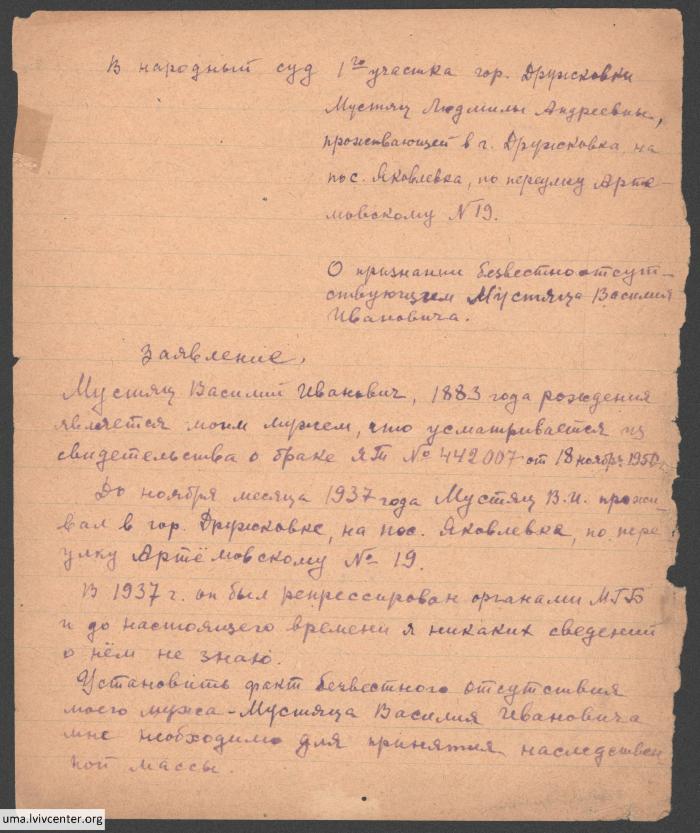 В народный суд 1го участка гор. Дружковки
Мустяц Людмилы Андреевны,
проживающей в г. Дружковка, на
пос. Яковлевка, по переулку Арте-
мовскому N 19.
О признании безвестноотсут-
ствующем Мустяца Василия
Ивановича.
Заявление.
Мустяц Василий Иванович, 1883 года рождения
является моим мужем, что усматривается из
свидетельства о браке ЯТ № 442007 от 18 ноября
До ноября месяца 1937 года Мустяц В.И. прожи-
вал в гор. Дружковке, на пос. Яковлевка, по пере
улку Артёмовскому № 19.
В 1937 г. он был репрессирован органами МГБ
и до настоящего времени я никаких сведений
о нём не знаю.
Установить факт безвестного отсутствия
моего мужа - Мустяца Василия Ивановича
мне необходимо для принятия наследствен
ной массы.
uma.lvivcenter.org